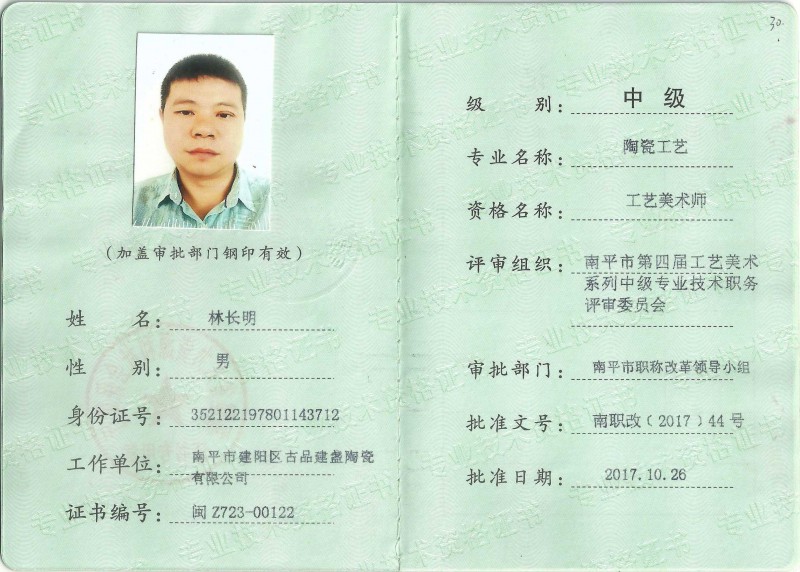 (加盖审批部门钢印有效)
姓 名: 林长明
性 别: 男
身份证号: 352122197801143712
工作单位: 南平市建阳区古品建盏陶瓷
有限公司
证书编号: 闽 Z723-00122
30.
级 别: 中 级
专业名称: 陶瓷工艺
资格名称: 工艺美术师
评审组织: 南平市第四届工艺美术
系列中级专业技术职务
评审委员会
审批部门: 南平市职称改革领导小组
批准文号: 南职改﹝2017﹞44 号
批准日期: 2017.10.26
专业技术资格证书